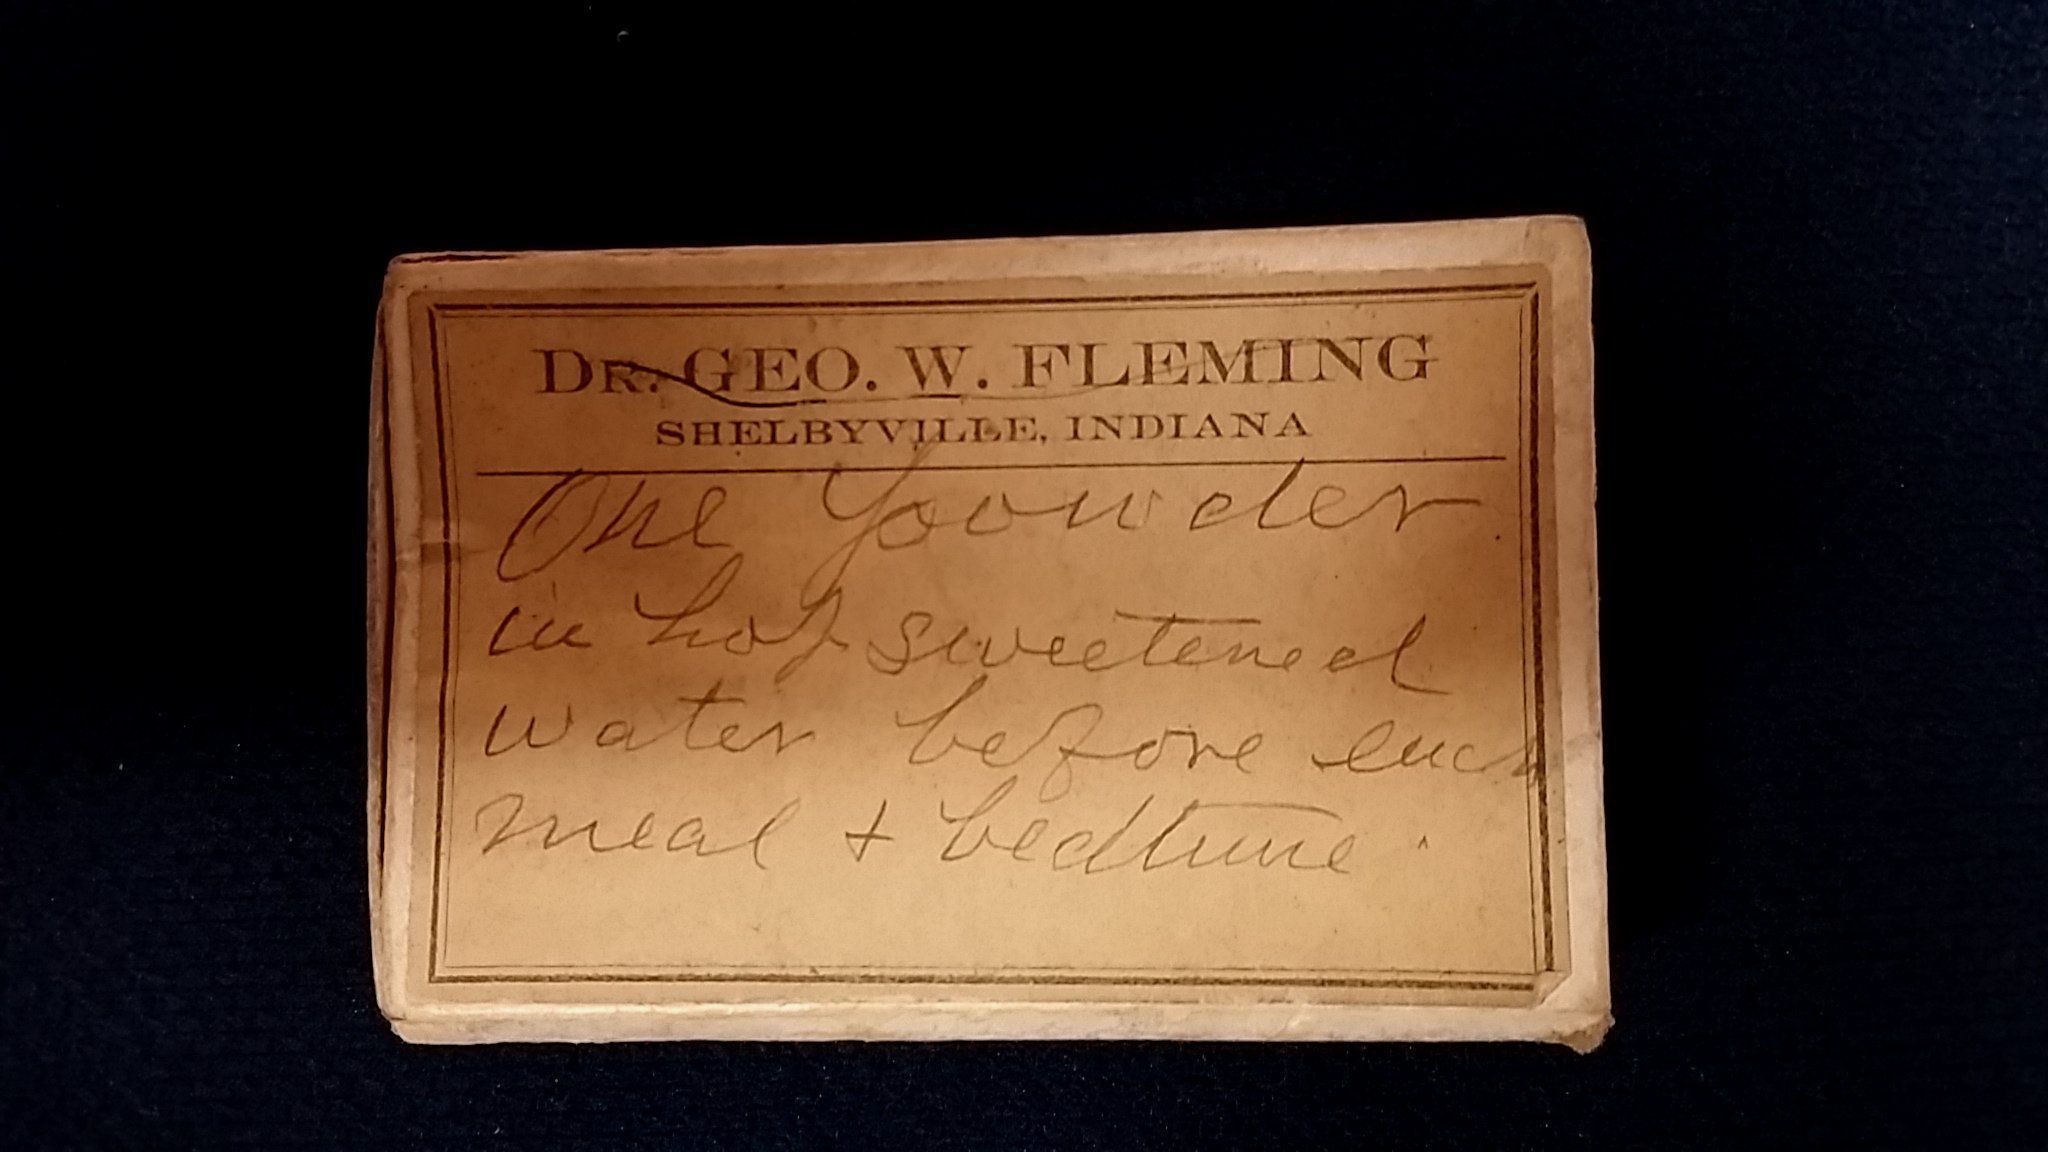 DR. GEO. W. FLEMING
SHELBYVILLE, INDIANA
One powder
in hot sweetened
water before each
meal + bedtime.